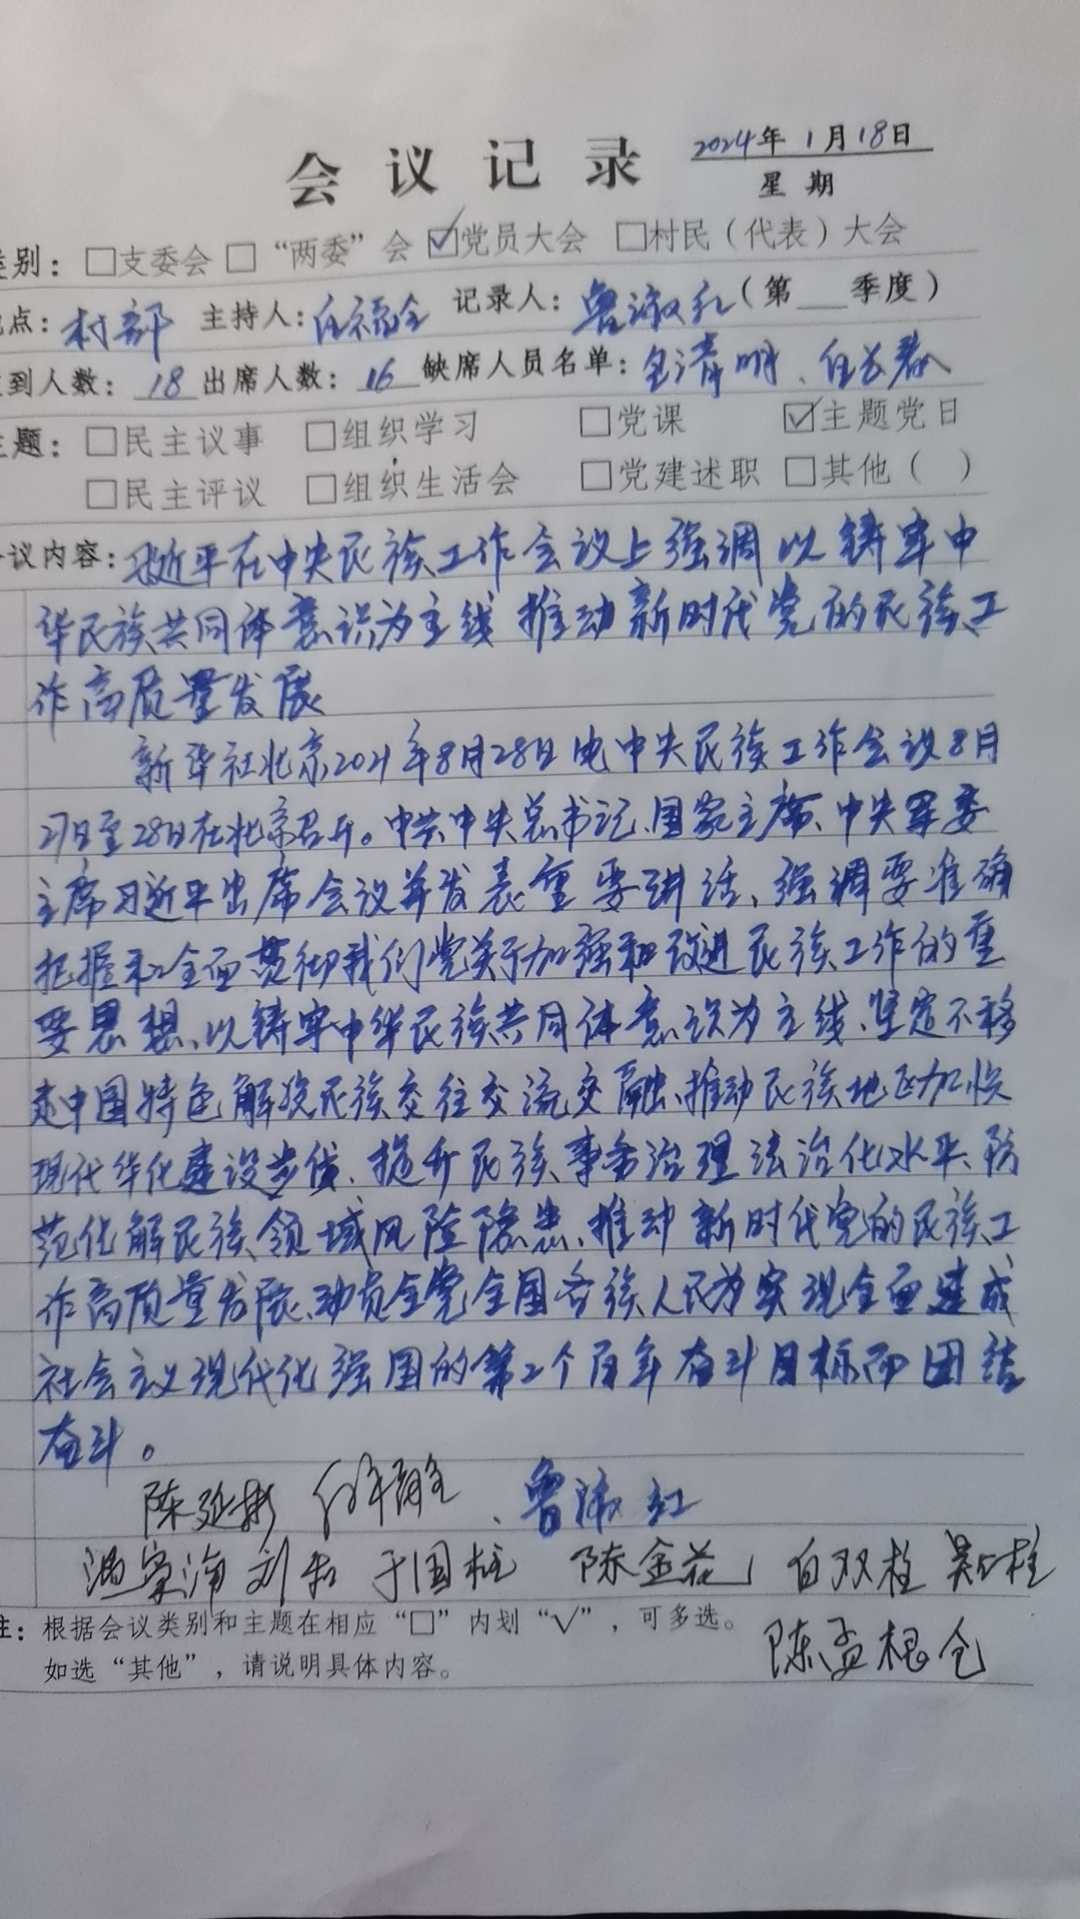 会议记录 2024年1月18日
星期
类别：□支委会 □“两委”会 ☑党员大会 □村民（代表）大会
点：村部 主持人： 记录人：鲁淑红（第 季度）
到人数：18 出席人数：16 缺席人员名单：
主题：□民主议事 □组织学习 □党课 ☑主题党日
□民主评议 □组织生活会 □党建述职 □其他（ ）
议内容：习近平在中央民族工作会议上强调 以铸牢中
华民族共同体意识为主线 推动新时代党的民族工
作高质量发展
新华社北京2021年8月28日电 中央民族工作会议8月
27日至28日在北京召开。中共中央总书记、国家主席、中央军委
主席习近平出席会议并发表重要讲话、强调要准确
把握和全面贯彻我们党关于加强和改进民族工作的重
要思想、以铸牢中华民族共同体意识为主线、坚定不移
走中国特色解决民族交往交流交融、推动民族地区加快
现代华化建设步伐、提升民族事务治理法治化水平、防
范化解民族领域风险隐患、推动新时代党的民族工
作高质量发展、动员全党全国各族人民为实现全面建成
社会主义现代化强国的第2个百年奋斗目标而团结
奋斗。
陈延彬 、鲁淑红
刘 于国柱 陈金花 白双柱
注：根据会议类别和主题在相应“□”内划“√”，可多选。
如选“其他”，请说明具体内容。 陈孟根仓